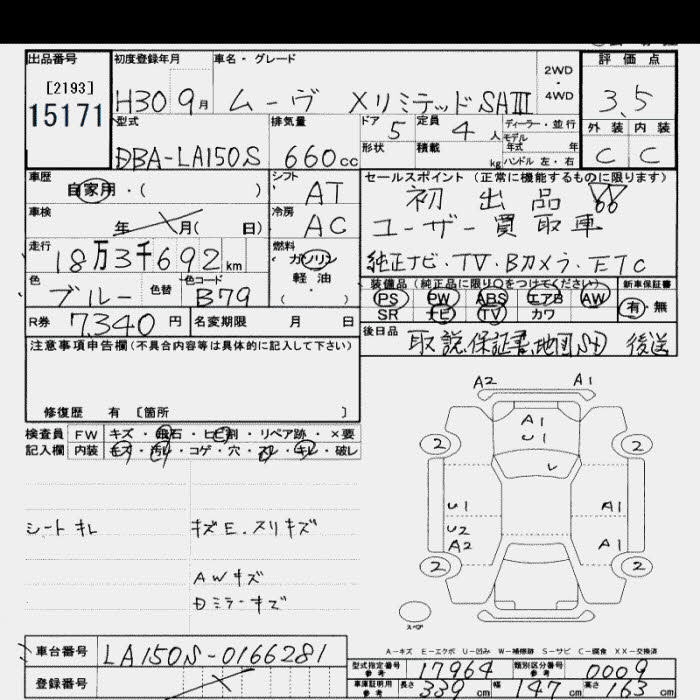 出品番号
[2193]
15171
初度登録年月
H30 9月
車名・グレード
ムーヴ XリミテッドSAⅢ
2WD
・
4WD
評価点
3.5
外装 内装
C C
型式
DBA-LA150S
排気量
660cc
ドア 5
定員 4人
形状
積載 kg
ディーラー・並行
モデル
年式 年
ハンドル 左・右
車歴
自家用・( )
シフト
AT
車検
年 月( 日)
冷房
AC
走行
18万3千692km
燃料
ガソリン
軽油
( )
色
ブルー
色替
色コード
B79
R券 7,340円
名変期限 月 日
セールスポイント(正常に機能するものに限ります)
初出品
ユーザー買取車
純正ナビ・TV・Bカメラ・ETC
装備品(純正品に限り○をつけてください)
PS PW ABS エアB AW
SR ナビ TV カワ
新車保証書
有・無
後日品
取説、保証書、地図SD 後送
注意事項申告欄(不具合内容等は具体的に記入して下さい)
修復歴 有 [箇所 ]
検査員 FW キズ・飛石・ヒビ割・リペア跡・×要
記入欄 内装 キズ・汚レ・コゲ・穴・スレ・キレ・破レ
シートキレ
キズE.スリキズ
AWキズ
Dミラーキズ
A2 A1
A1
U1
2 2
レ
U1 A1
U2
A2 A1
2 2
スペア
A-キズ E-エクボ U-凹み W-補修跡 S-サビ C-腐食 XX-交換済
車台番号 LA150S-0166281
登録番号
型式指定番号
参考
17964
類別区分番号
参考
0009
車庫証明用
参考
長さ 339cm 幅 147cm 高さ 163cm